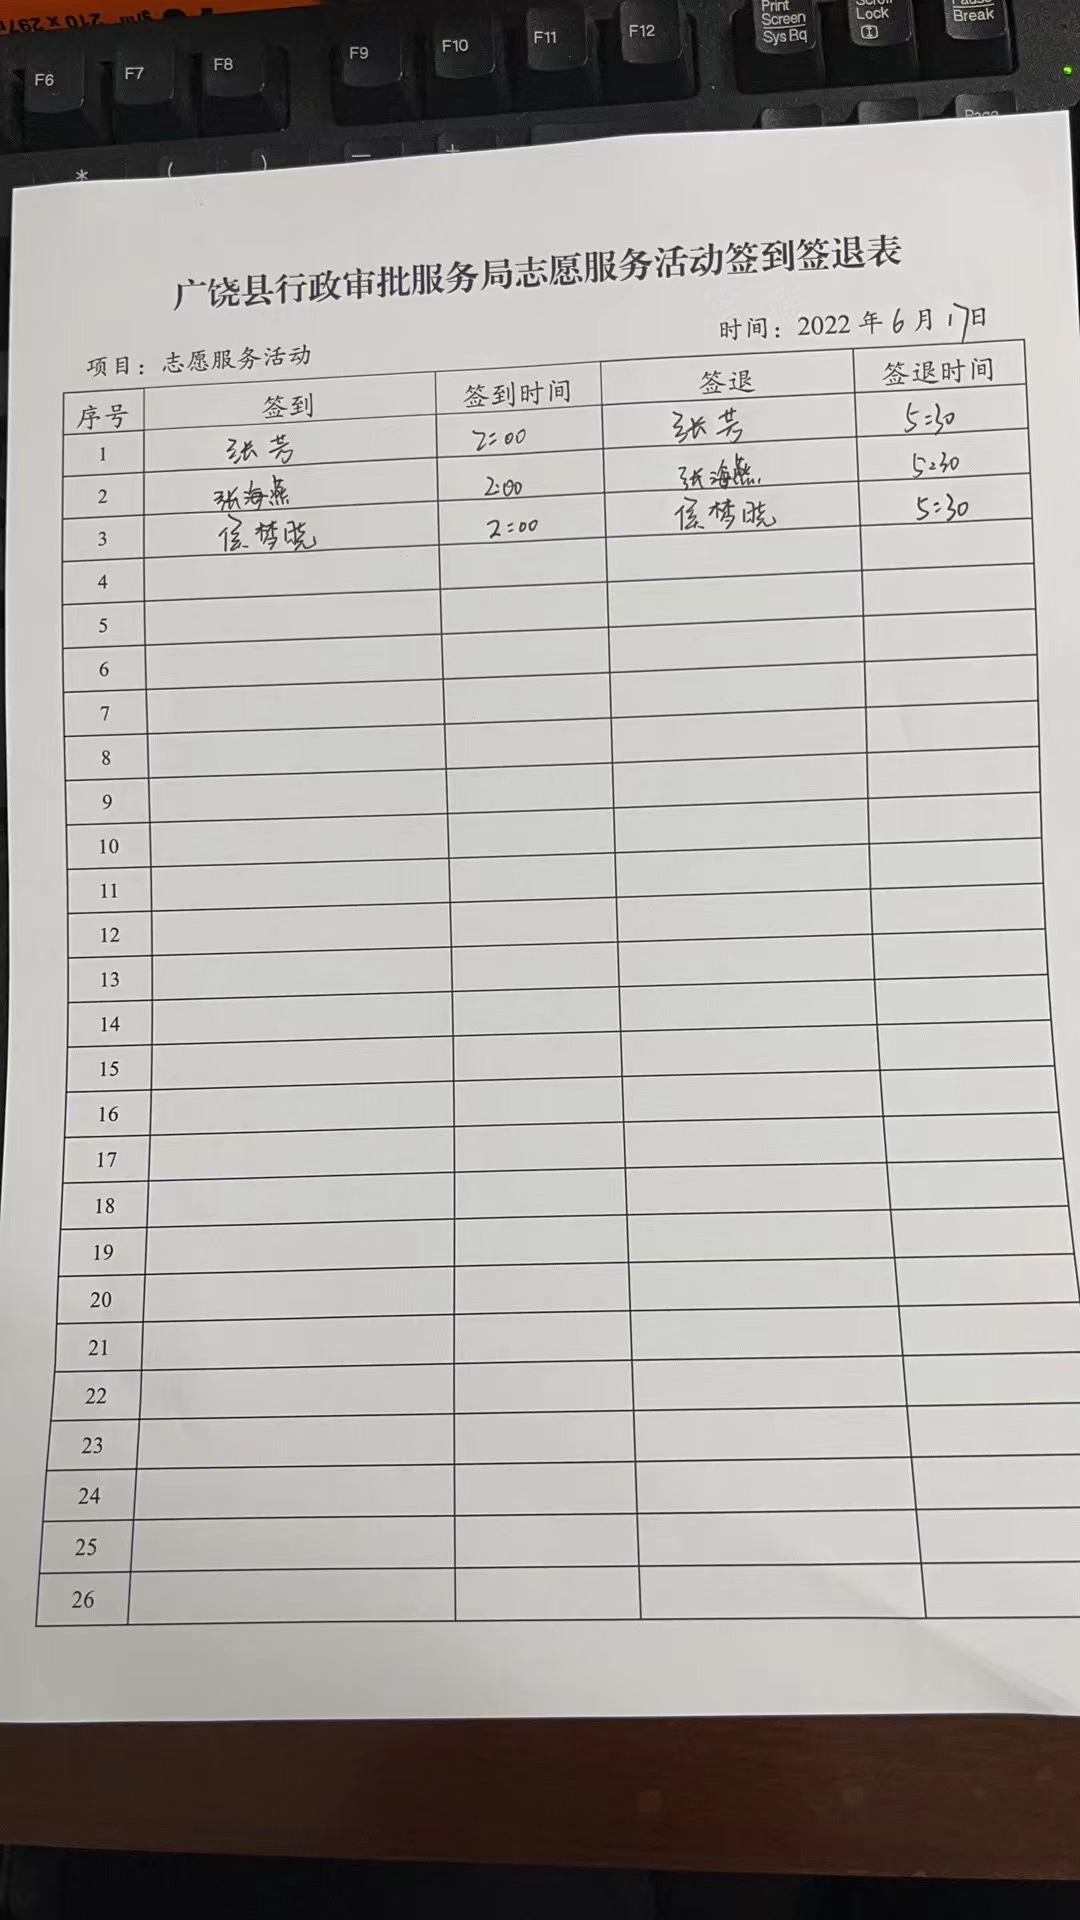 210 x 297
F6 F7 F8 F9 F10 F11 F12 Print Screen SysRq Scroll Lock Pause Break
* ( ) — + Page
广饶县行政审批服务局志愿服务活动签到签退表
项目：志愿服务活动 时间：2022 年 6 月 17日
序号 签到 签到时间 签退 签退时间
1 张芳 2:00 张芳 5:30
2 张海燕 2:00 张海燕 5:30
3 侯梦晓 2:00 侯梦晓 5:30
4
5
6
7
8
9
10
11
12
13
14
15
16
17
18
19
20
21
22
23
24
25
26